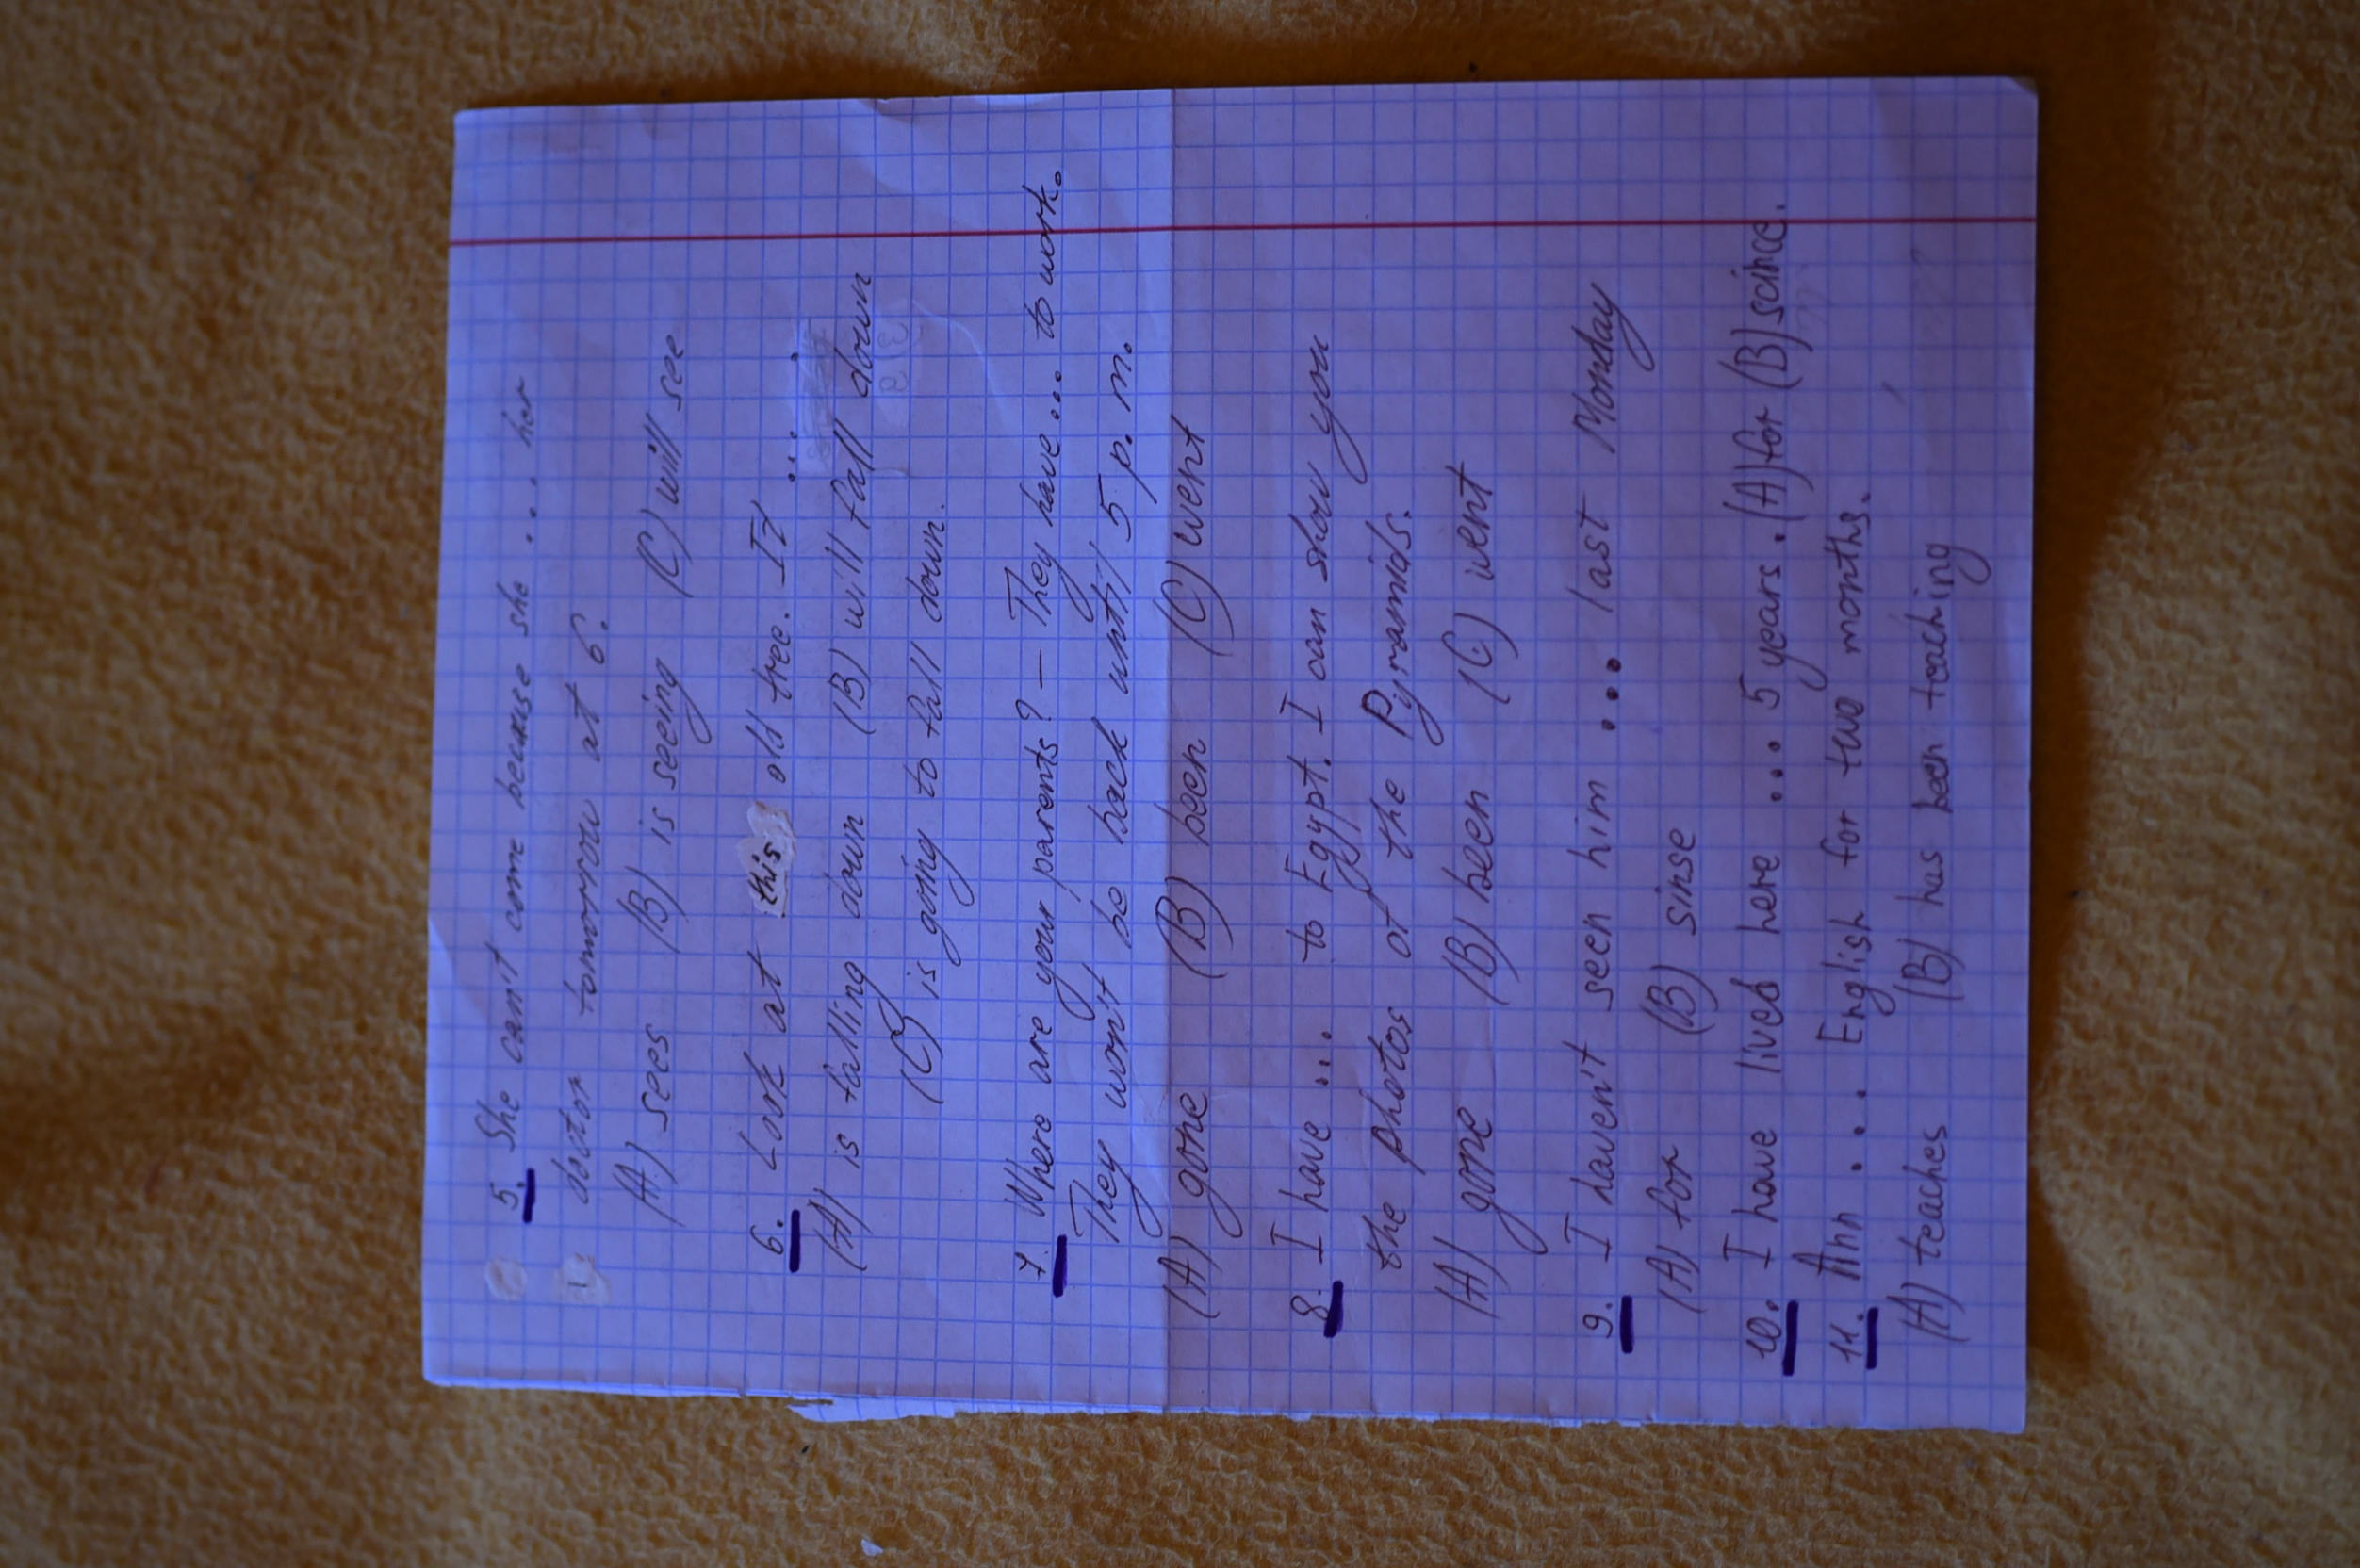 5. She can't come because she .... her
doctor tomorrow at 6.
(A) sees (B) is seeing (C) will see
6. Look at this old tree. It ... .
(A) is falling down (B) will fall down
(C) is going to fall down.
7. Where are your parents? — They have.... to work.
They won't be back until 5 p.m.
(A) gone (B) been (C) went
8. I have ... to Egypt. I can show you
the photos of the Pyramids.
(A) gone (B) been (C) went
9. I haven't seen him ... last Monday
(A) for (B) sinse
10. I have lived here ... 5 years. (A) for (B) scince.
11. Ann ... English for two months.
(A) teaches (B) has been teaching